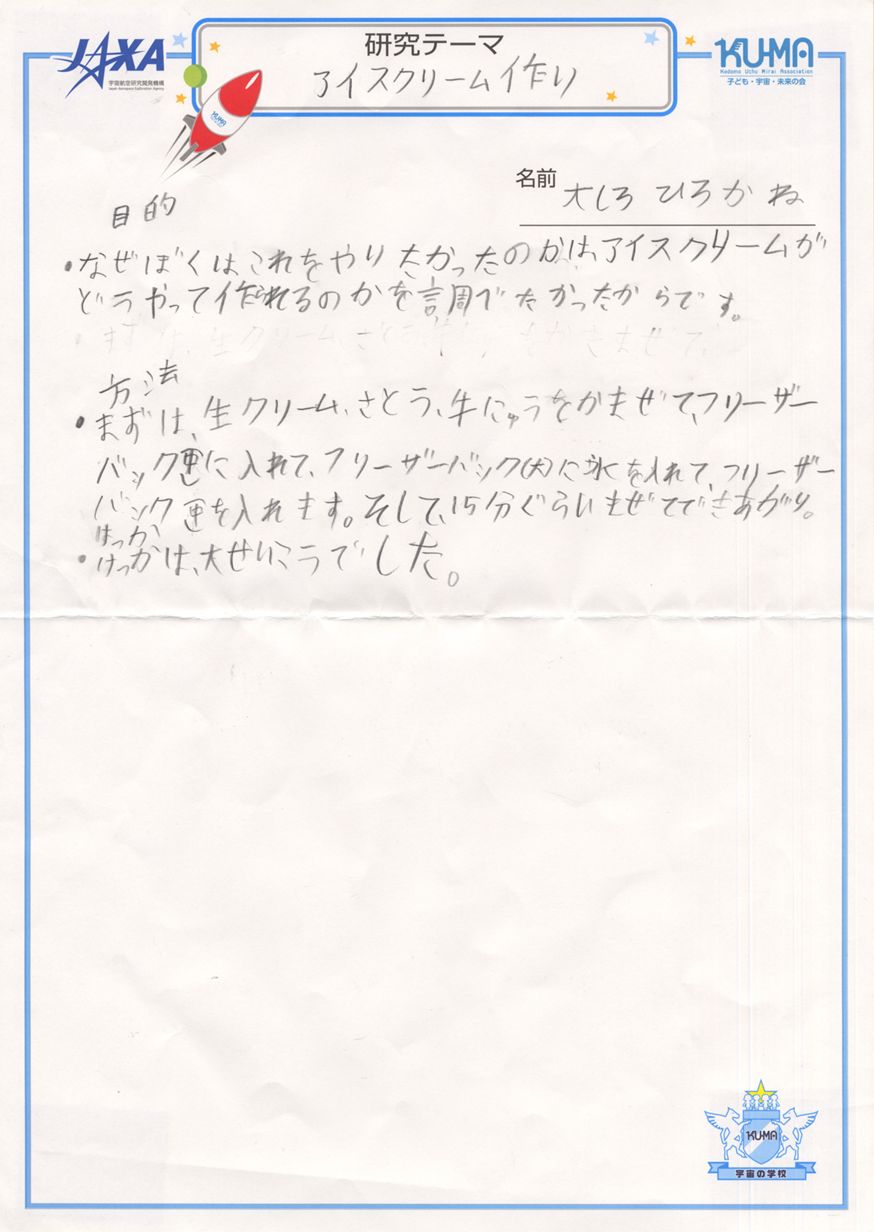 JAXA
宇宙航空研究開発機構
Japan Aerospace Exploration Agency
研究テーマ
アイスクリーム作り
KU-MA
Kodomo Uchu Mirai Association
子ども・宇宙・未来の会
KUMA
名前 大しろ ひろかね
目的
・なぜぼくはこれをやりたかったのかは、アイスクリームが
どうやって作られるのかを調べたかったからです。
・まずは、生クリーム、さとう、
方法
・まずは、生クリーム、さとう、牛にゅうをかまぜて、フリーザー
バックに入れて、フリーザーバック(大)に氷を入れて、フリーザー
バックを入れます。そして、15分ぐらいまぜてできあがり。
けっか
・けっかは、大せいこうでした。
KU-MA
宇宙の学校